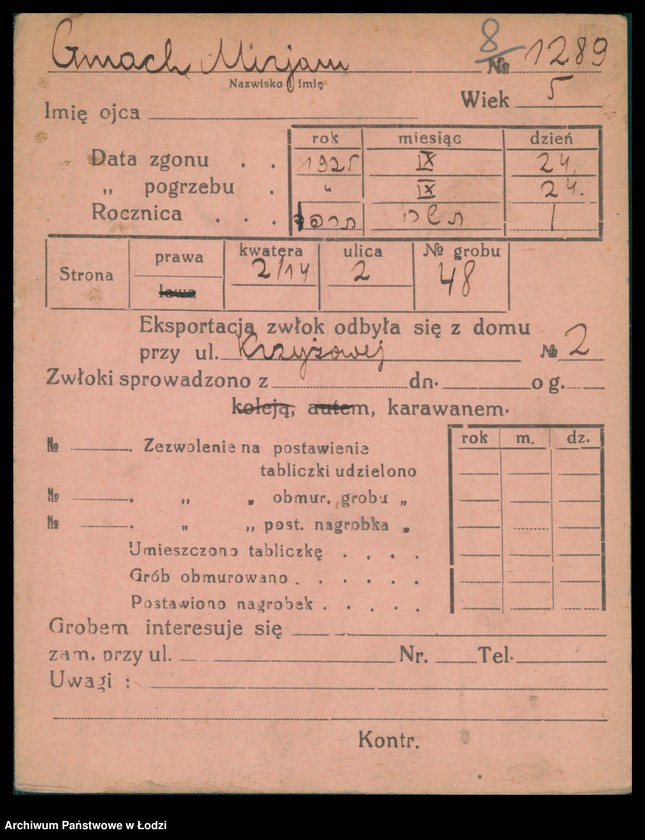 Gmach Mirjam 8 № 1289
Nazwisko i imię
Wiek 5
Imię ojca
rok miesiąc dzień
Data zgonu . . 1925 IX 24.
„ pogrzebu . " IX 24.
Rocznica . . .
Strona prawa lewa kwatera 2/14 ulica 2 № grobu 48
Eksportacja zwłok odbyła się z domu
przy ul. Krzyżowej № 2
Zwłoki sprowadzono z dn. o g.
koleją, autem, karawanem.
rok m. dz.
№ . Zezwolenie na postawienie
tabliczki udzielono
№ . „ „ obmur. grobu „
№ . „ „ post. nagrobka „
Umieszczono tabliczkę . . . .
Grób obmurowano . . . . . .
Postawiono nagrobek . . . . .
Grobem interesuje się
zam. przy ul. Nr. Tel.
Uwagi :
Kontr.
Archiwum Państwowe w Łodzi